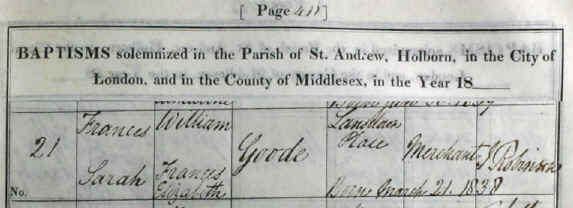 [ Page 411 ]
BAPTISMS solemnized in the Parish of St. Andrew, Holborn, in the City of
London, and in the County of Middlesex, in the Year 18
21
No.
Frances
Sarah
William
Frances
Elizabeth
Goode
Lansdown
Place
Merchant
J Robinson
Born March 21. 1838